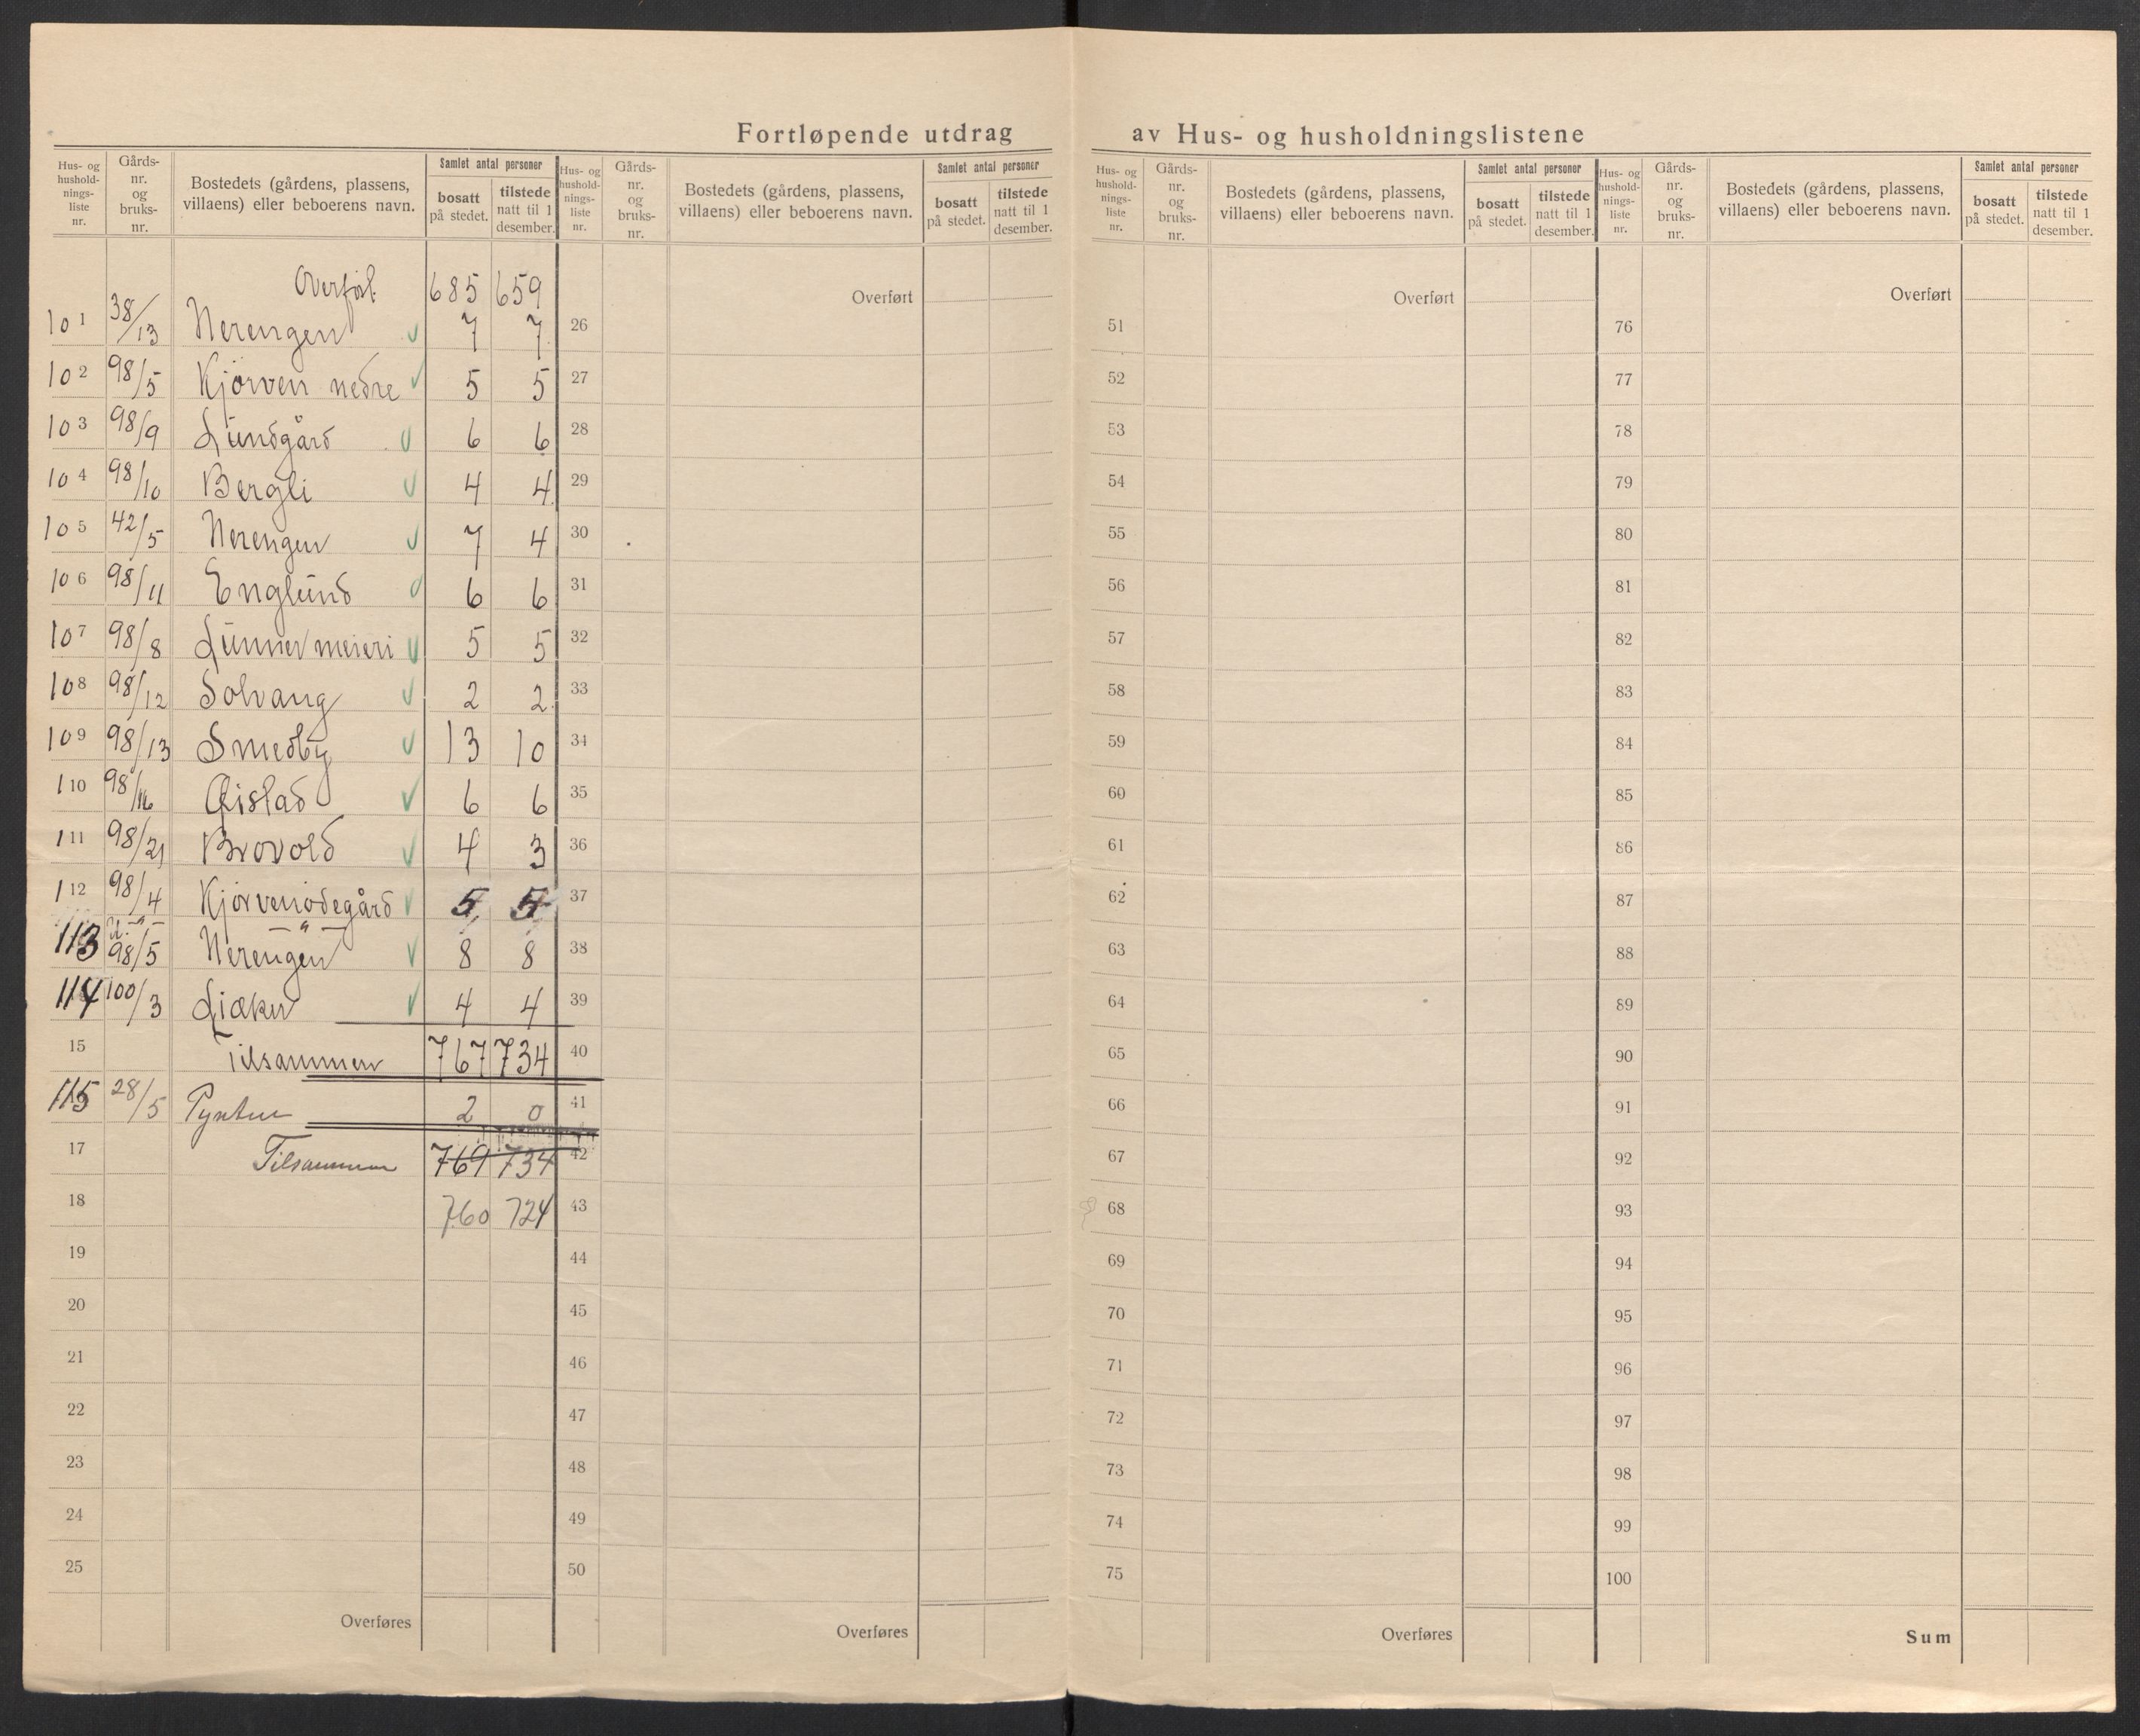 Fortløpende utdrag av Hus- og husholdningslistene
Hus- og hushold- nings- liste nr. Gårds- nr. og bruks- nr. Bostedets (gårdens, plassens, villaens) eller beboerens navn. Samlet antal personer bosatt på stedet. tilstede natt til 1 desember.
Overført 685 659
101 38/13 Nerengen 7 7
102 98/5 Kjørven nedre 5 5
103 98/9 Lundgård 6 6
104 98/10 Bergli 4 4
105 42/5 Nerengen 7 4
106 98/11 Englund 6 6
107 98/8 Lunner meieri 5 5
108 98/12 Solvang 2 2
109 98/13 Smedby 13 10
110 98/16 6 6
111 98/21 Brovold 4 3
112 98/4 Kjørvenødegård 5 5
113 98/5 Nerengen 8 8
114 100/3 Liæker 4 4
15 Tilsammen 767 734
115 28/5 2 0
17 Tilsammen 769 734
18 760 724
19
20
21
22
23
24
25
Overføres
Hus- og hushold- nings- liste nr. Gårds- nr. og bruks- nr. Bostedets (gårdens, plassens, villaens) eller beboerens navn. Samlet antal personer bosatt på stedet. tilstede natt til 1 desember.
Overført
26
27
28
29
30
31
32
33
34
35
36
37
38
39
40
41
42
43
44
45
46
47
48
49
50
Overføres
Hus- og hushold- nings- liste nr. Gårds- nr. og bruks- nr. Bostedets (gårdens, plassens, villaens) eller beboerens navn. Samlet antal personer bosatt på stedet. tilstede natt til 1 desember.
Overført
51
52
53
54
55
56
57
58
59
60
61
62
63
64
65
66
67
68
69
70
71
72
73
74
75
Overføres
Hus- og hushold- nings- liste nr. Gårds- nr. og bruks- nr. Bostedets (gårdens, plassens, villaens) eller beboerens navn. Samlet antal personer bosatt på stedet. tilstede natt til 1 desember.
Overført
76
77
78
79
80
81
82
83
84
85
86
87
88
89
90
91
92
93
94
95
96
97
98
99
100
Sum